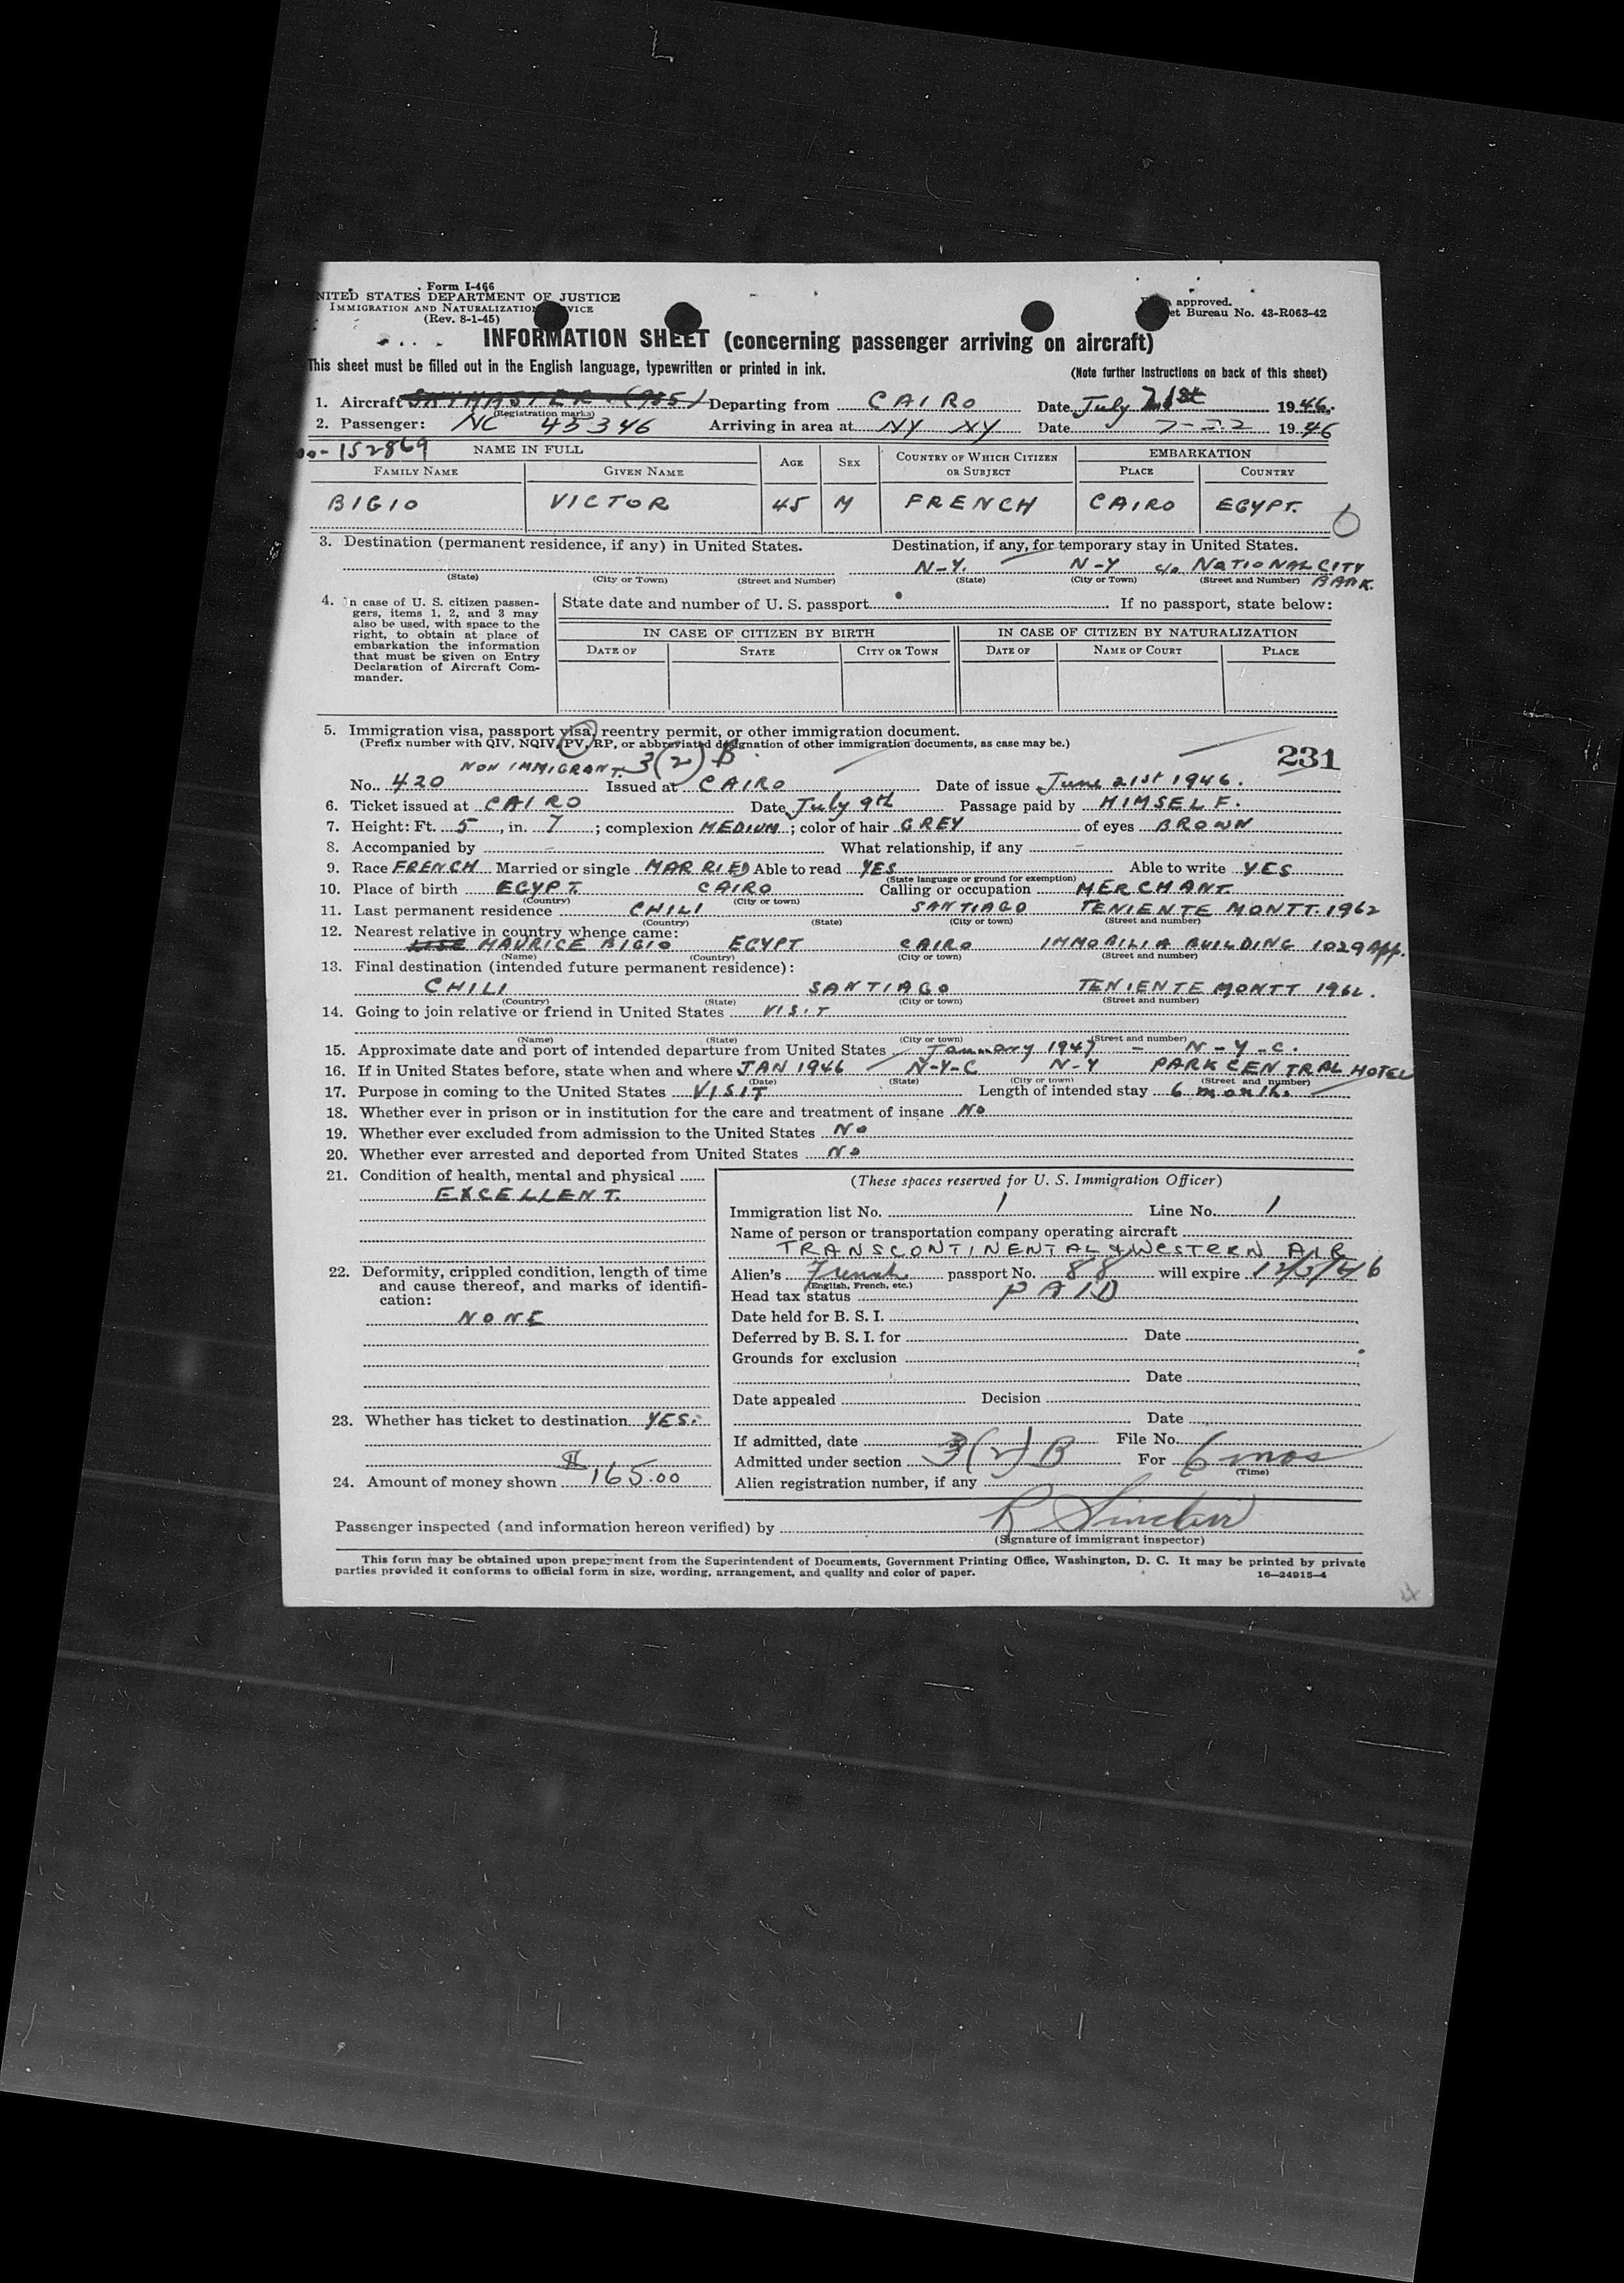 Form I-466
UNITED STATES DEPARTMENT OF JUSTICE
IMMIGRATION AND NATURALIZATION SERVICE
(Rev. 8-1-45)
approved.
et Bureau No. 43-R063-42
INFORMATION SHEET (concerning passenger arriving on aircraft)
This sheet must be filled out in the English language, typewritten or printed in ink.
(Note further instructions on back of this sheet)
1. Aircraft SKYMASTER (935) Departing from CAIRO Date July 21st 1946.
(Registration marks)
2. Passenger: NC 45346 Arriving in area at NY NY Date 7-22 1946
152869 NAME IN FULL AGE SEX COUNTRY OF WHICH CITIZEN OR SUBJECT EMBARKATION
FAMILY NAME GIVEN NAME PLACE COUNTRY
BIGIO VICTOR 45 M FRENCH CAIRO EGYPT.
3. Destination (permanent residence, if any) in United States. Destination, if any, for temporary stay in United States.
N-Y. N-Y c/o NATIONAL CITY BANK.
(State) (City or Town) (Street and Number) (State) (City or Town) (Street and Number)
4. In case of U. S. citizen passengers, items 1, 2, and 3 may also be used, with space to the right, to obtain at place of embarkation the information that must be given on Entry Declaration of Aircraft Commander.
State date and number of U. S. passport If no passport, state below:
IN CASE OF CITIZEN BY BIRTH IN CASE OF CITIZEN BY NATURALIZATION
DATE OF STATE CITY OR TOWN DATE OF NAME OF COURT PLACE
5. Immigration visa, passport visa, reentry permit, or other immigration document.
(Prefix number with QIV, NQIV, PV, RP, or abbreviated designation of other immigration documents, as case may be.)
NON IMMIGRANT. 3(2) B 231
No. 420 Issued at CAIRO Date of issue June 21st 1946.
6. Ticket issued at CAIRO Date July 9th Passage paid by HIMSELF.
7. Height: Ft. 5, in. 7; complexion MEDIUM; color of hair GREY of eyes BROWN
8. Accompanied by - What relationship, if any -
9. Race FRENCH Married or single MARRIED Able to read YES Able to write YES
(State language or ground for exemption)
10. Place of birth EGYPT. CAIRO Calling or occupation MERCHANT.
(Country) (City or town)
11. Last permanent residence CHILI SANTIAGO TENIENTE MONTT. 1962
(Country) (State) (City or town) (Street and number)
12. Nearest relative in country whence came:
LISE MAURICE BIGIO EGYPT CAIRO IMMOBILIA BUILDING 1029 App.
(Name) (Country) (City or town) (Street and number)
13. Final destination (intended future permanent residence):
CHILI SANTIAGO TENIENTE MONTT 1962.
(Country) (State) (City or town) (Street and number)
14. Going to join relative or friend in United States VISIT
(Name) (State) (City or town) (Street and number)
15. Approximate date and port of intended departure from United States January 1947 - N-Y-C.
16. If in United States before, state when and where JAN 1946 N-Y-C N-Y PARK CENTRAL HOTEL
(Date) (State) (City or town) (Street and number)
17. Purpose in coming to the United States VISIT Length of intended stay 6 months
18. Whether ever in prison or in institution for the care and treatment of insane No
19. Whether ever excluded from admission to the United States No
20. Whether ever arrested and deported from United States No
21. Condition of health, mental and physical
EXCELLENT.
22. Deformity, crippled condition, length of time and cause thereof, and marks of identification:
NONE
23. Whether has ticket to destination YES.
24. Amount of money shown $165.00
(These spaces reserved for U. S. Immigration Officer)
Immigration list No. 1 Line No. 1
Name of person or transportation company operating aircraft
TRANSCONTINENTAL & WESTERN AIR
Alien's French passport No. 88 will expire 12/5/46
(English, French, etc.)
Head tax status PAID
Date held for B. S. I.
Deferred by B. S. I. for Date
Grounds for exclusion
Date
Date appealed Decision
Date
If admitted, date File No.
Admitted under section 3(2) B For 6 mos
(Time)
Alien registration number, if any
Passenger inspected (and information hereon verified) by R Sinclair
(Signature of immigrant inspector)
This form may be obtained upon prepayment from the Superintendent of Documents, Government Printing Office, Washington, D. C. It may be printed by private
parties provided it conforms to official form in size, wording, arrangement, and quality and color of paper. 16—24915-4